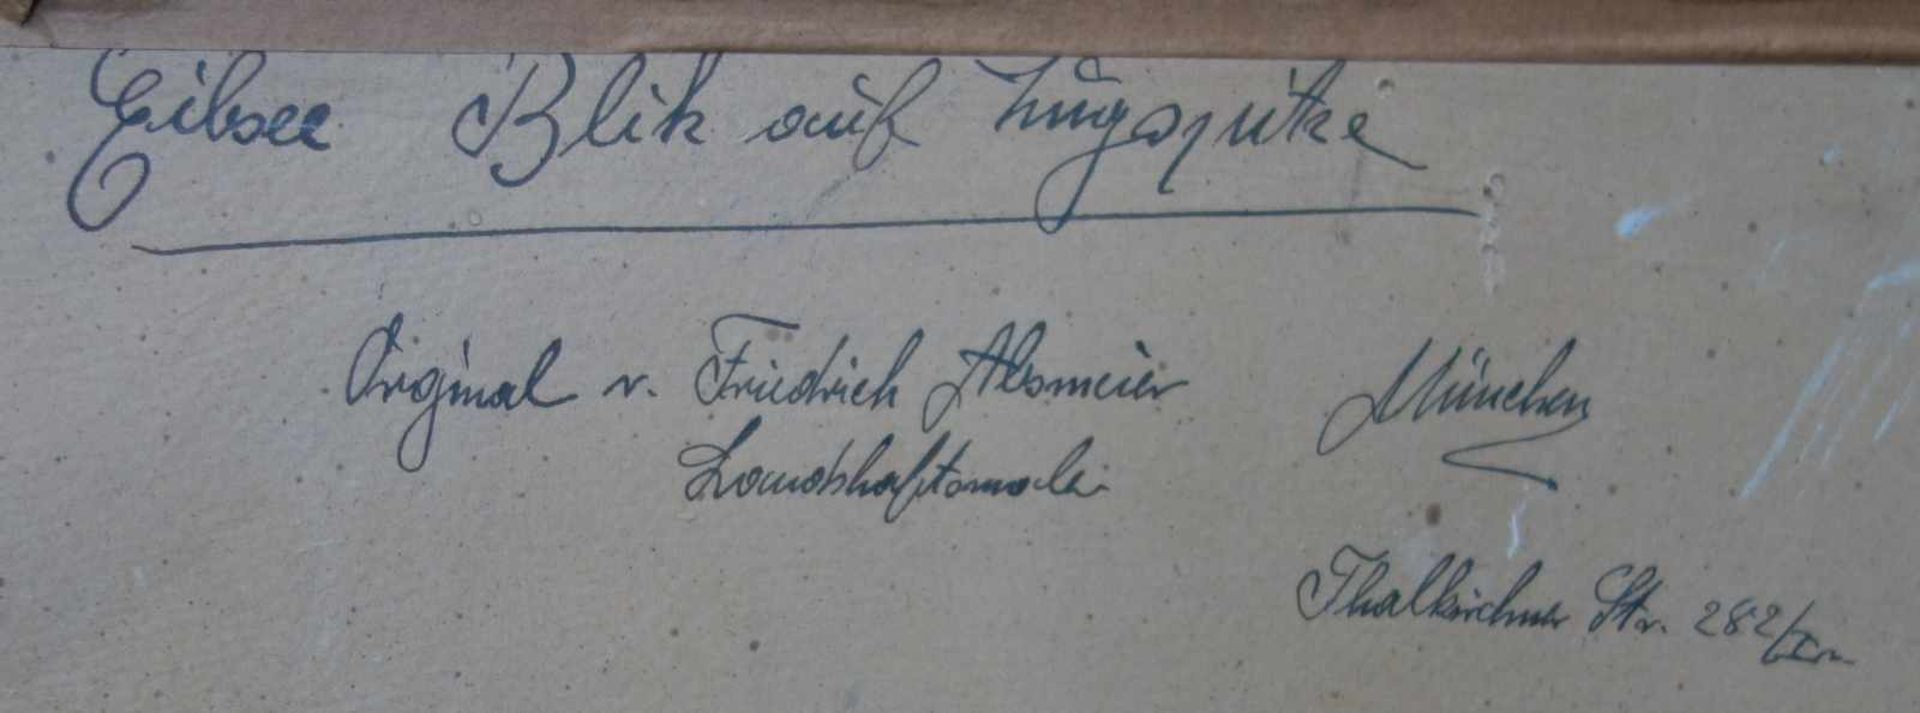 Eibsee Blik auf Zugspitze
Original v. Friedrich Alsmeier München
Landshaftsmaler
Thalkirchner Str. 282/